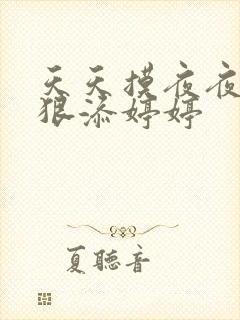 天天摸夜夜
狠添婷婷
夏聽音